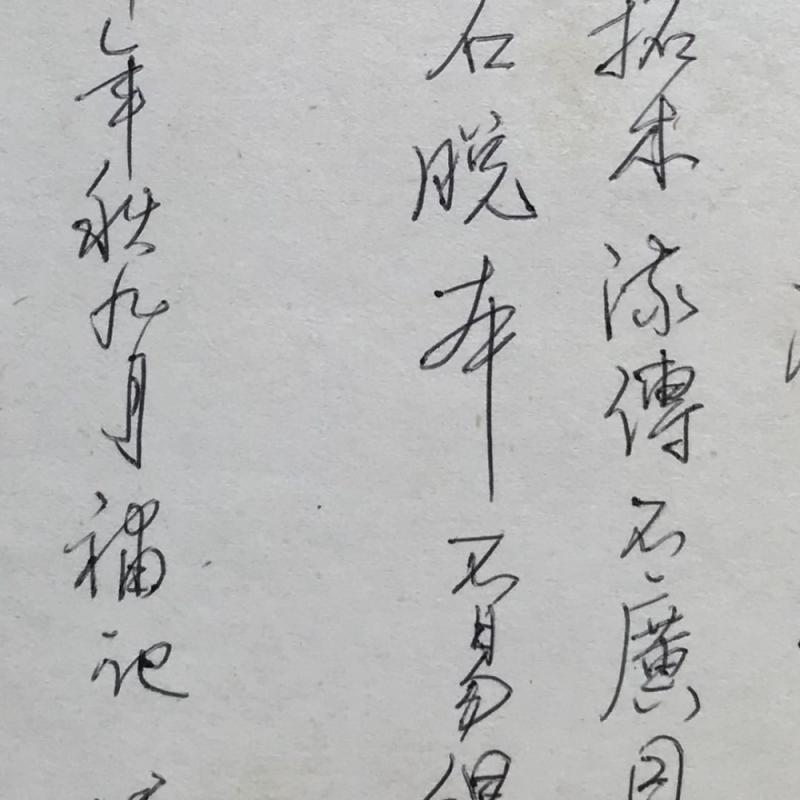 拓本流傳不廣因
石脫本不易得
年秋九月補記